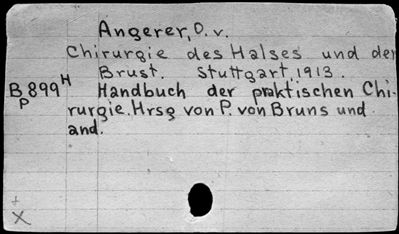 Angerer, O. v.
Chirurgie des Halses und der
Brust. Stuttgart, 1913.
B 899 H Handbuch der praktischen Chi-
P rurgie. Hrsg von P. von Bruns und
and.
+
X